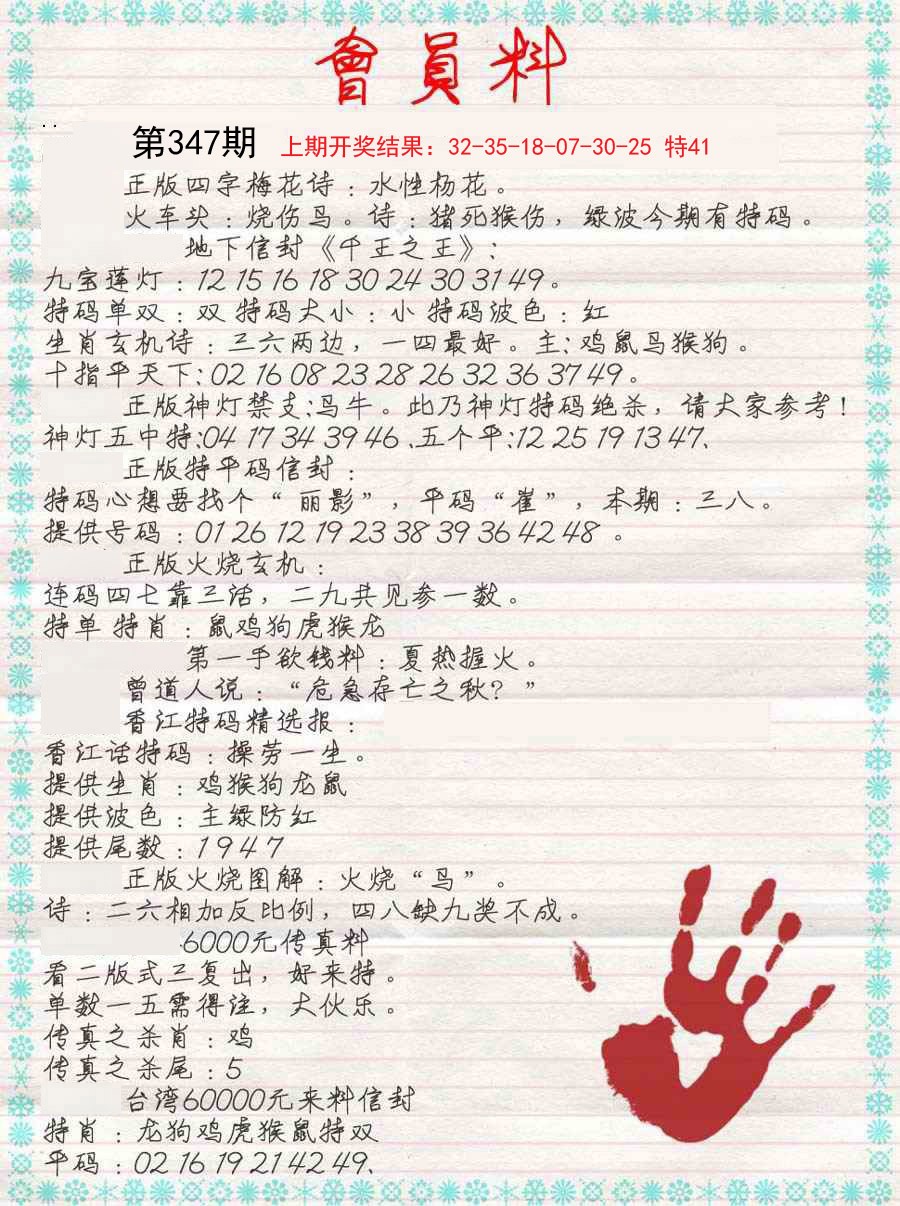 會員料
第347期 上期开奖结果：32-35-18-07-30-25 特41
正版四字梅花诗：水性杨花。
火车头：烧伤鸟。诗：猪死猴伤，绿波今期有特码。
地下信封《千王之王》：
九宝莲灯：12 15 16 18 30 24 30 31 49。
特码单双：双 特码大小：小 特码波色：红
生肖玄机诗：三六两边，一四最好。主：鸡鼠鸟猴狗。
十指平天下：02 16 08 23 28 26 32 36 37 49。
正版神灯禁支：鸟牛。此乃神灯特码绝杀，请大家参考！
神灯五中特：04 17 34 39 46、五个平：12 25 19 13 47、
正版特平码信封：
特码心想要找个“丽影”，平码“崔”，本期：三八。
提供号码：01 26 12 19 23 38 39 36 42 48 。
正版火烧玄机：
连码四七靠三话，二九共见参一数。
特单 特肖：鼠鸡狗虎猴龙
第一手欲钱料：夏热握火。
曾道人说：“危急存亡之秋？”
香江特码精选报：
香江话特码：操劳一生。
提供生肖：鸡猴狗龙鼠
提供波色：主绿防红
提供尾数：1 9 4 7
正版火烧图解：火烧“鸟”。
诗：二六相加反比例，四八缺九奖不成。
6000元传真料
看二版式三复出，好来特。
单数一五需得注，大伙乐。
传真之杀肖：鸡
传真之杀尾：5
台湾60000元来料信封
特肖：龙狗鸡虎猴鼠特双
平码：02 16 19 21 42 49、